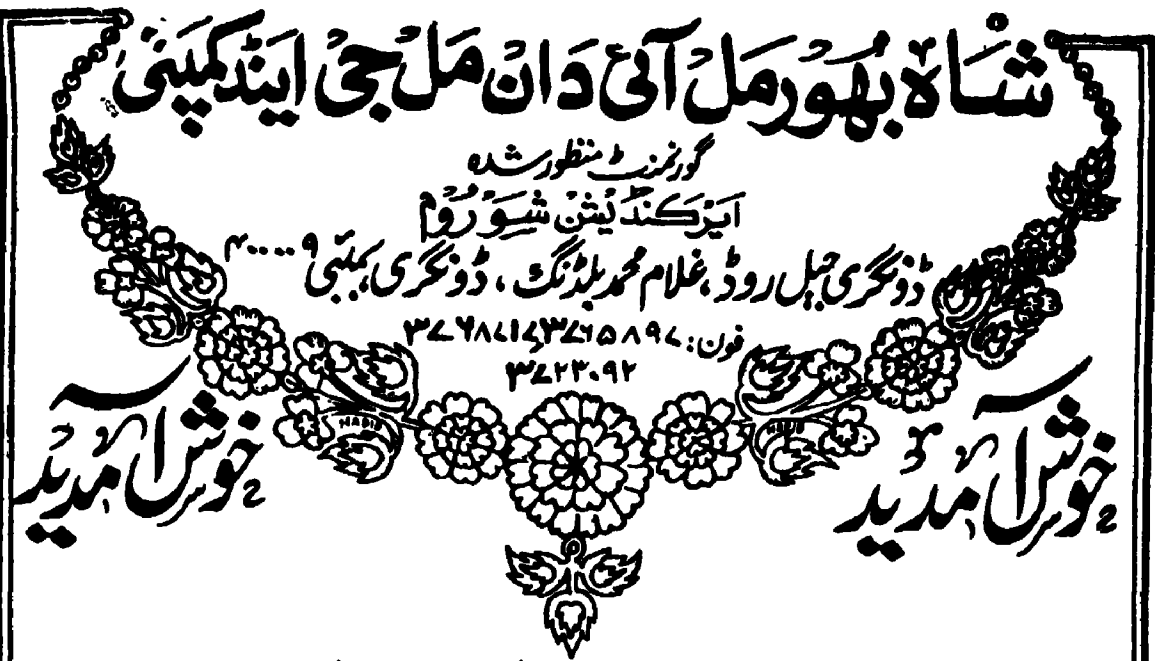 شاہ بھورمل آئی دان مل جی اینڈ کمپنی
گورنمنٹ منظور شدہ
ایئرکنڈیشن شو روم
ڈونگری جیل روڈ، غلام محمد بلڈنگ، ڈونگری، بمبئی ۴۰۰۰۰۹
فون: ۳۷۶۵۸۹۷، ۳۷۶۸۷۱۷
۳۷۲۳۰۹۲
خوش آمدید
خوش آمدید
HABIB
HABIB